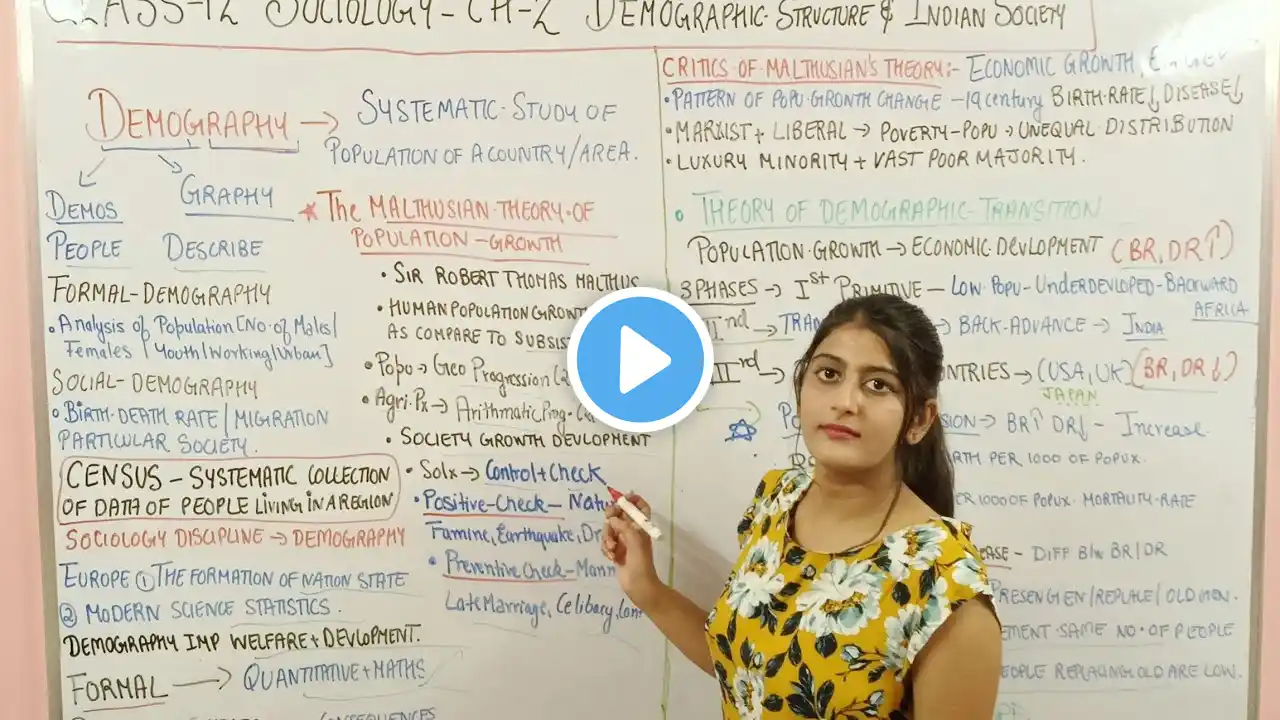 CLASS-12 SOCIOLOGY - CH-2 DEMOGRAPHIC STRUCTURE & INDIAN SOCIETY
DEMOGRAPHY → SYSTEMATIC STUDY OF
POPULATION OF A COUNTRY/AREA.
DEMOS GRAPHY
PEOPLE DESCRIBE
FORMAL-DEMOGRAPHY
• Analysis of Population [No. of Males/
Females / Youth/Working/Urban]
SOCIAL-DEMOGRAPHY
• BIRTH-DEATH RATE / MIGRATION
PARTICULAR SOCIETY.
CENSUS – SYSTEMATIC COLLECTION
OF DATA OF PEOPLE LIVING IN A REGION
SOCIOLOGY DISCIPLINE → DEMOGRAPHY
EUROPE ① THE FORMATION OF NATION STATE
② MODERN SCIENCE STATISTICS.
DEMOGRAPHY IMP WELFARE + DEVLOPMENT.
FORMAL → QUANTITATIVE + MATHS
CONSEQUENCES
★ The MALTHUSIAN THEORY OF
POPULATION – GROWTH
• SIR ROBERT THOMAS MALTHUS
• HUMAN POPULATION GROWTH
AS COMPARE TO
• Popu → Geo Progression
• Agri. Px → Arithmatic Prog.
• SOCIETY GROWTH DEVLOPMENT
• Solx → Control + Check
• Positive-Check –
Famine, Earthquake,
• Preventive Check –
Late Marriage, Celibacy,
CRITICS OF MALTHUSIAN'S THEORY:- ECONOMIC GROWTH,
• PATTERN OF POPU. GROWTH CHANGE – 19 century BIRTH-RATE↓, DISEASE↓
• MARXIST + LIBERAL → POVERTY-POPU → UNEQUAL DISTRIBUTION
• LUXURY MINORITY + VAST POOR MAJORITY.
• THEORY OF DEMOGRAPHIC-TRANSITION
POPULATION-GROWTH → ECONOMIC-DEVLOPMENT (BR, DR↑)
3 PHASES → Ist PRIMITIVE – LOW-POPU-UNDERDEVLOPED-BACKWARD
AFRICA
IInd → → BACK-ADVANCE → INDIA
IIIrd → → (USA, UK) (BR, DR↓)
JAPAN
→ BR↑ DR↓ – Increase.
PER 1000 OF POPUX.
PER 1000 OF POPUX. MORTALITY-RATE
– DIFF B/w BR/DR
SAME NO. OF PEOPLE
OLD ARE LOW.